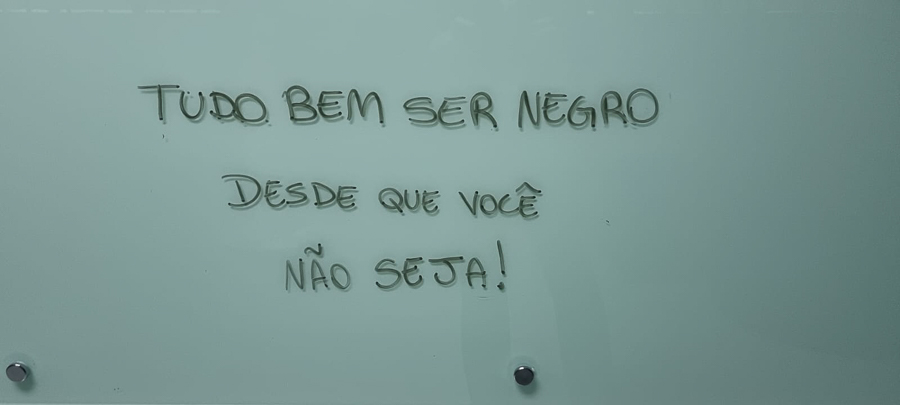 TUDO BEM SER NEGRO
DESDE QUE VOCÊ
NÃO SEJA!